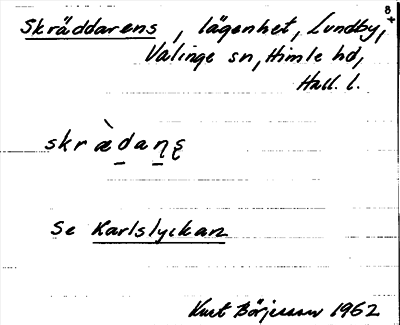 8
+
Skräddarens, lägenhet, Lundby,
Valinge sn, Himle hd,
Hall. l.
skræ̀da̠n̠ȩ
Se Karlslyckan
Kurt Börjesson 1962